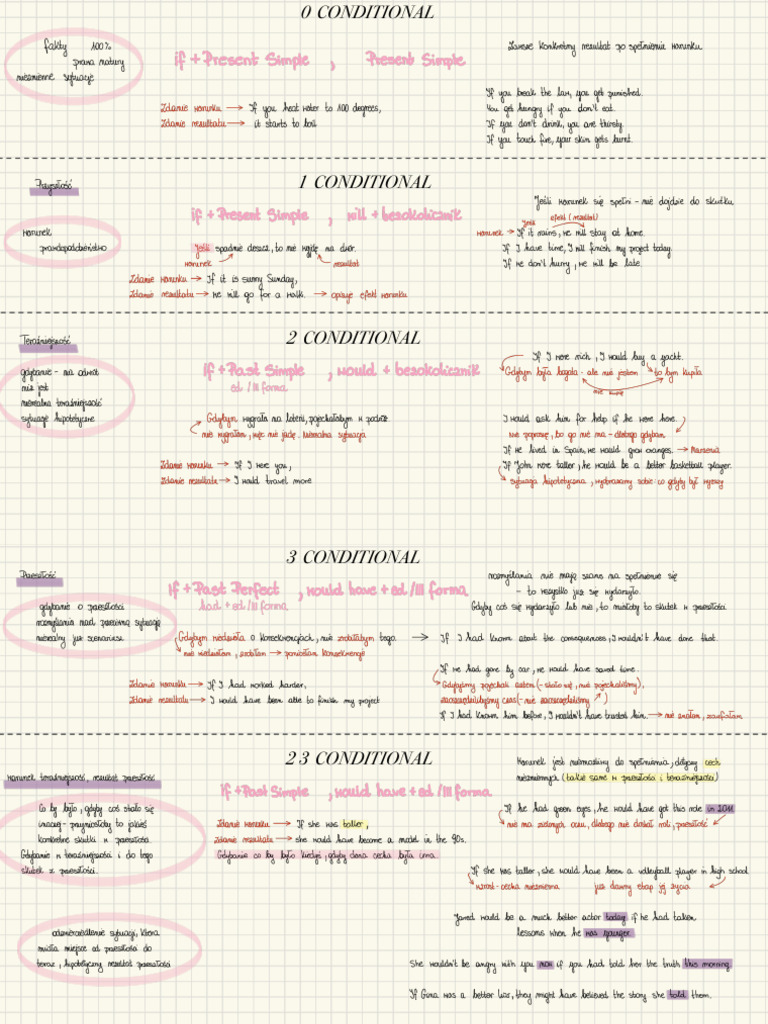 0 CONDITIONAL
fakty 100%
prawa natury
niezmienne sytuacje
if + Present Simple , Present Simple
Zawsze konkretny rezultat po spełnieniu warunku.
Zdanie warunku → If you heat water to 100 degrees,
Zdanie rezultatu → it starts to boil
If you beak the law, you get punished.
You get hungry if you don't eat.
If you don't drink, you are thirsty.
If you touch fire, your skin gets burnt.
1 CONDITIONAL
Przyszłość
warunek
prawdopodobieństwo
if + Present Simple , will + bezokolicznik
Jeśli spadnie deszcz, to nie wyjdę na dwór.
warunek rezultat
Zdanie warunku → If it is sunny Sunday,
Zdanie rezultatu → we will go for a walk. → opisuje efekt warunku
Jeśli warunek się spełni - nie dojdzie do skutku
Jeśli efekt (rezultat)
warunek → If it rains, we will stay at home.
If I have time, I will finish my project today.
If we don't hurry, we will be late.
2 CONDITIONAL
Teraźniejszość
gdybanie - na odwrót
niż jest
nierealna teraźniejszość
sytuacje hipotetyczne
if + Past Simple , would + bezokolicznik
ed / III forma
Gdybym wygrała na loterii, pojechałabym w podróż.
nie wygrałam, więc nie jadę. Nierealna sytuacja
Zdanie warunku → If I were you,
Zdanie rezultatu → I would travel more
If I were rich, I would buy a yacht.
Gdybym była bogata - ale nie jestem → to bym kupiła
nie kupię
I would ask him for help if he were here.
nie poproszę, bo go nie ma - dlatego gdybam
If we lived in Spain, we would grow oranges. → Marzenia
If John were taller, he would be a better basketball player.
sytuacja hipotetyczna, wyobrażamy sobie: co gdyby był wyższy
3 CONDITIONAL
Przeszłość
gdybanie o przeszłości
rozmyślania nad przeszłą sytuacją
nierealny już scenariusz
if + Past Perfect , would have + ed / III forma
had + ed / III forma
Gdybym wiedziała o konsekwencjach, nie zrobiłabym tego. → If I had known about the consequences, I wouldn't have done that.
nie wiedziałam, zrobiłam → poniosłam konsekwencje
Zdanie warunku → If I had worked harder,
Zdanie rezultatu → I would have been able to finish my project
rozmyślania nie mają szans na spełnienie się
- to wszystko już się wydarzyło.
Gdyby coś się wydarzyło lub nie, to miałoby to skutek w przeszłości
If we had gone by car, we would have saved time.
Gdybyśmy pojechali autem (- stało się, nie pojechaliśmy),
zaoszczędzilibyśmy czas (- nie zaoszczędziliśmy)
If I had known him before, I wouldn't have trusted him. → nie znałam, zaufałam
2 3 CONDITIONAL
warunek teraźniejszość, rezultat przeszłość
Co by było, gdyby coś stało się
inaczej - przyniosłoby to jakieś
konkretne skutki w przeszłości.
Gdybanie w teraźniejszości i do tego
skutek z przeszłości.
odzwierciedlenie sytuacji, która
miała miejsce od przeszłości do
teraz, hipotetyczny rezultat przeszłości
if + Past Simple , would have + ed / III forma
Zdanie warunku → If she was taller,
Zdanie rezultatu → she would have become a model in the 90s.
Gdybanie co by było kiedyś, gdyby dana cecha była inna.
Warunek jest niemożliwy do spełnienia, dotyczy cech
niezmiennych (takie same w przeszłości i teraźniejszości)
If he had green eyes, he would have got this role in 2011
nie ma zielonych oczu, dlatego nie dostał roli, przeszłość
If she was taller, she would have been a volleyball player in high school
wzrost - cecha niezmienna już dawny etap jej życia
Jared would be a much better actor today if he had taken
lessons when he was younger
She wouldn't be angry with you now if you had told her the truth this morning
If Gina was a better liar, they might have believed the story she told them.